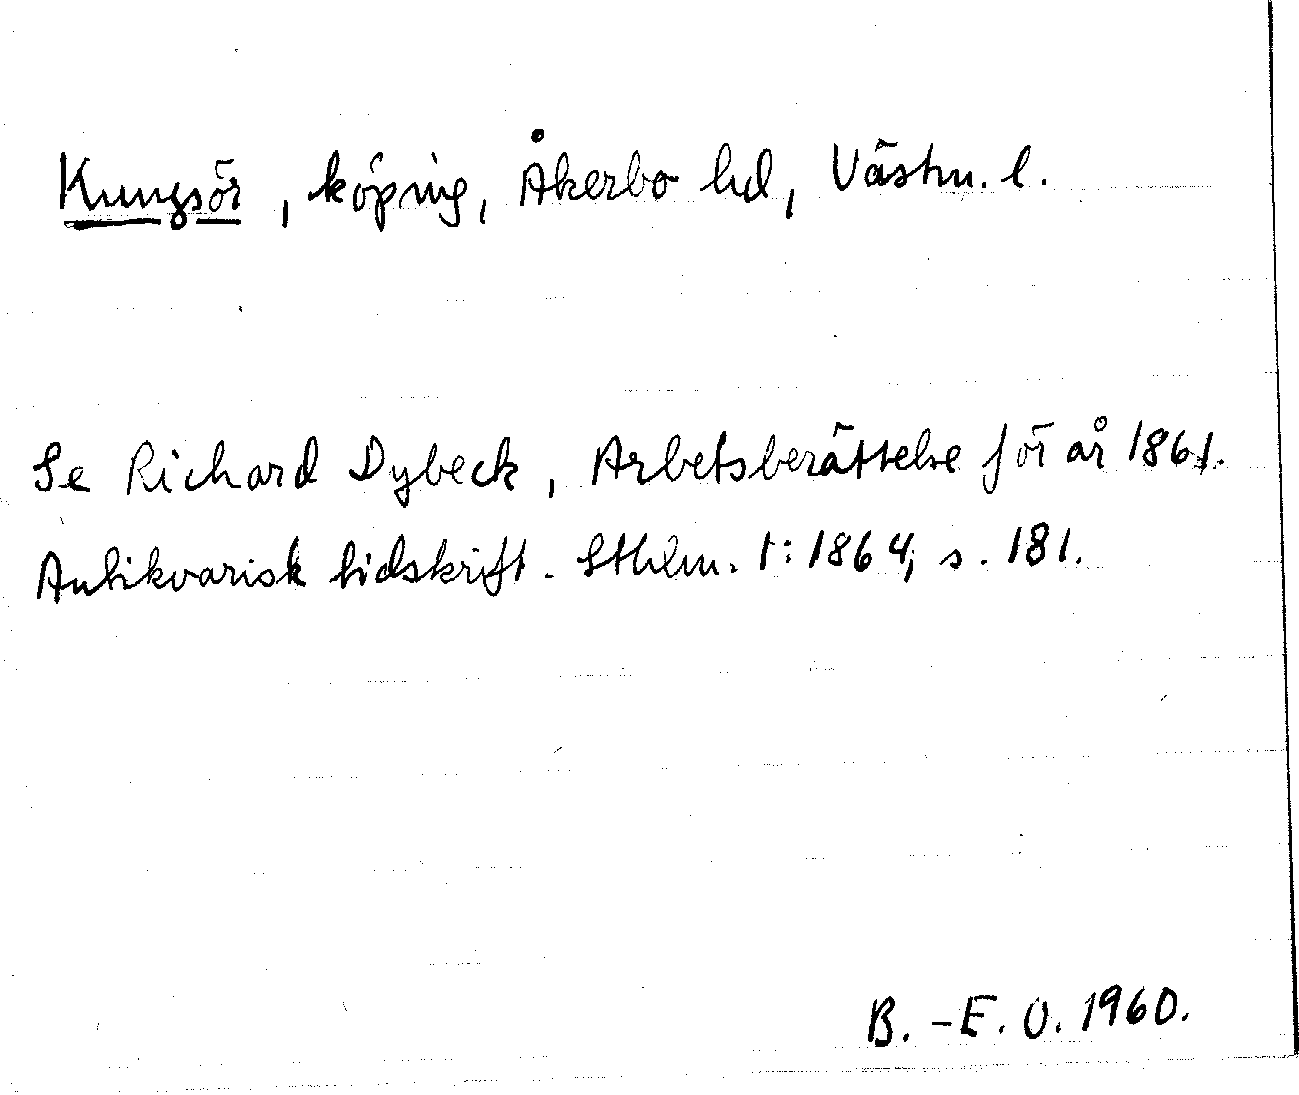 Kungsör, köping, Åkerbo hd, Västm. l.
Se Richard Dybeck, Arbetsberättelse för år 1861.
Antikvarisk tidskrift. Sthlm. 1:1864, s. 181.
B.-E. O. 1960.